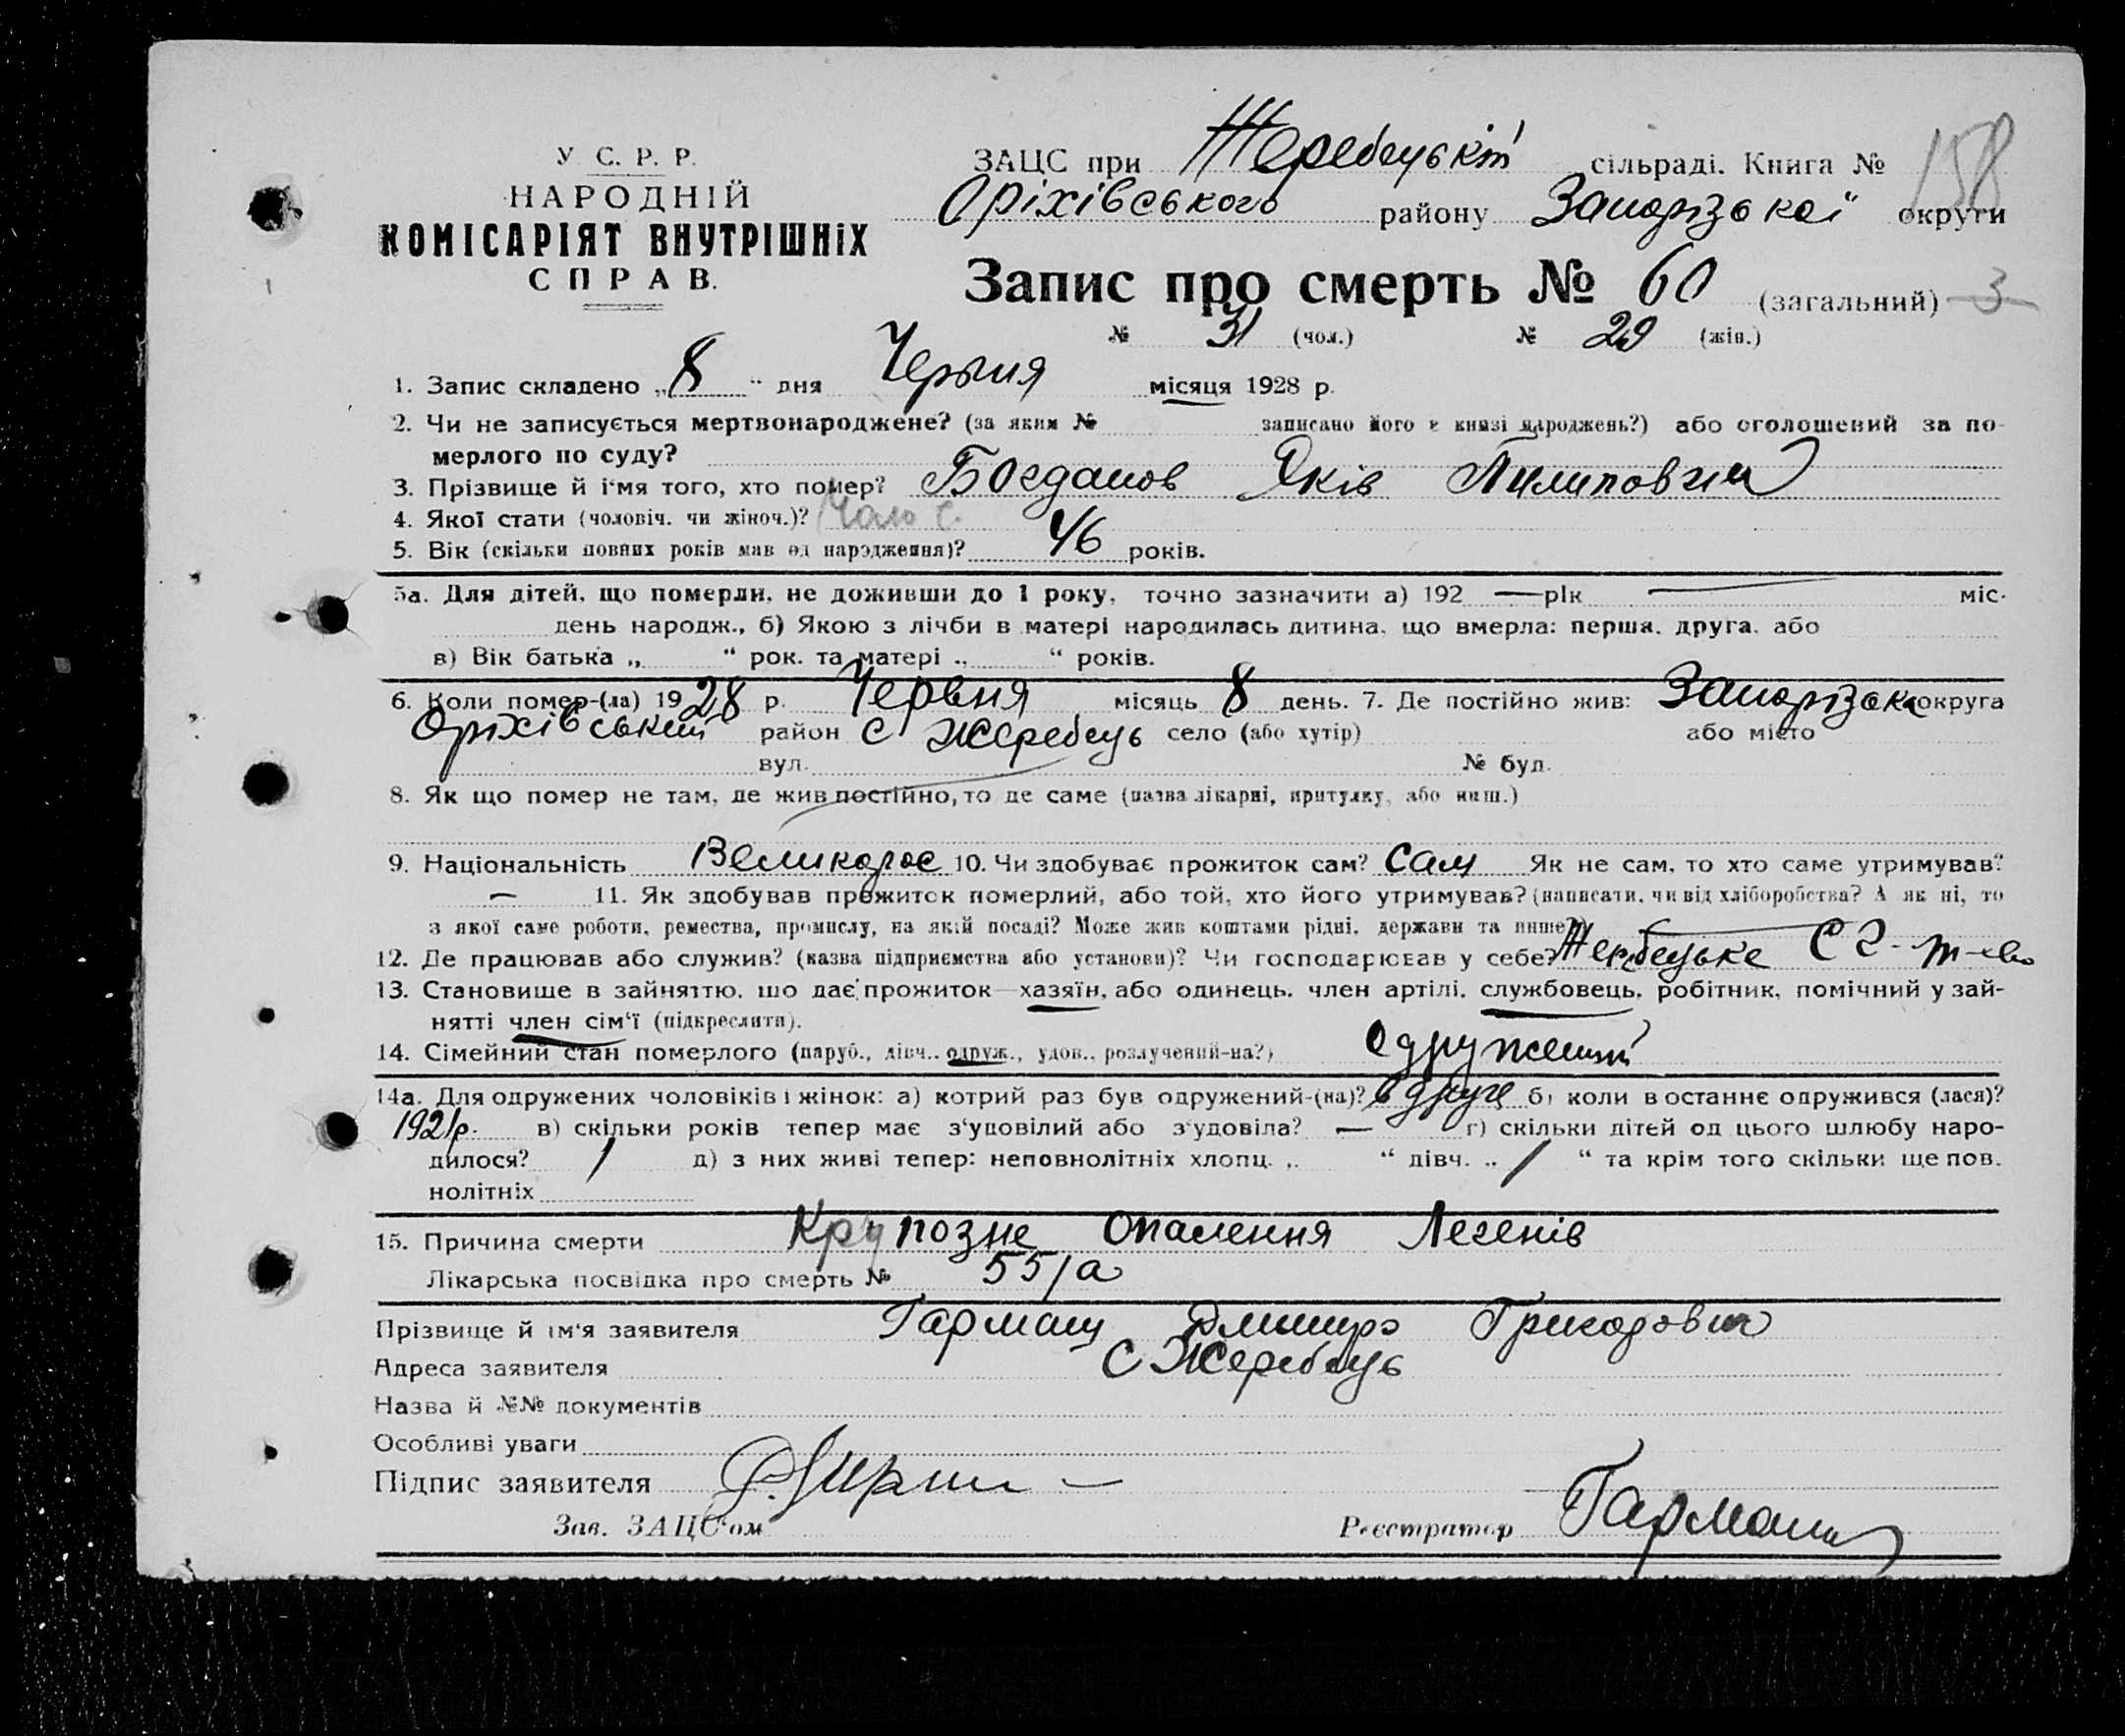 У. С. Р. Р.
НАРОДНІЙ
КОМІСАРІЯТ ВНУТРІШНІХ
СПРАВ.
ЗАЦС при Жеребецькій сільраді. Книга № 158
Оріхівського району Запорізької округи
Запис про смерть № 60 (загальний) 3
№ 31 (чол.) № 29 (жін.)
1. Запис складено „8“ дня Червня місяця 1928 р.
2. Чи не записується мертвонароджене? (за яким № записано його в книзі народжень?) або оголошений за по-
мерлого по суду?
3. Прізвище й і‘мя того, хто помер? Богданов Яків Пилипович
4. Якої стати (чоловіч. чи жіноч.)? Чолов.
5. Вік (скільки повних років мав од народження)? 46 років.
5а. Для дітей, що померли, не доживши до 1 року, точно зазначити а) 192 — рік — міс.
день народж., б) Якою з лічби в матері народилась дитина, що вмерла: перша, друга, або
в) Вік батька „ “ рок. та матері „ “ років.
6. Коли помер-(ла) 1928 р. Червня місяць 8 день. 7. Де постійно жив: Запорізька округа
Оріхівський район с Жеребець село (або хутір) або місто
вул. № буд.
8. Як що помер не там, де жив постійно, то де саме (назва лікарні, притулку, або инш.)
9. Національність Великорос 10. Чи здобуває прожиток сам? Сам Як не сам, то хто саме утримував?
— 11. Як здобував прожиток померлий, або той, хто його утримував? (написати, чи від хліборобства? А як ні, то
з якої саме роботи, ремества, промислу, на якій посаді? Може жив коштами рідні, держави та инше?)
12. Де працював або служив? (назва підприємства або установи)? Чи господарював у себе? Жеребецьке С Г-т-во
13. Становище в зайняттю, що дає прожиток—хазяїн, або одинець, член артілі, службовець, робітник, помічний у зай-
нятті член сім‘ї (підкреслити).
14. Сімейний стан померлого (паруб., дівч., одруж., удов., розлучений-на?) одружений
14а. Для одружених чоловіків і жінок: а) котрий раз був одружений-(на)? в друге б) коли востаннє одружився (лася)?
1921р. в) скільки років тепер має з‘удовілий або з‘удовіла? — г) скільки дітей од цього шлюбу наро-
дилося? 1 д) з них живі тепер: неповнолітніх хлопц. „ “ дівч. „ 1 “ та крім того скільки ще пов.
нолітніх
15. Причина смерти Крупозне Опалення Легенів
Лікарська посвідка про смерть № 55/а
Прізвище й ім‘я заявителя Гармаш Дмитро Григорович
Адреса заявителя С Жеребець
Назва й №№ документів
Особливі уваги
Підпис заявителя
Зав. ЗАЦС‘ом Реєстратор Гармаш